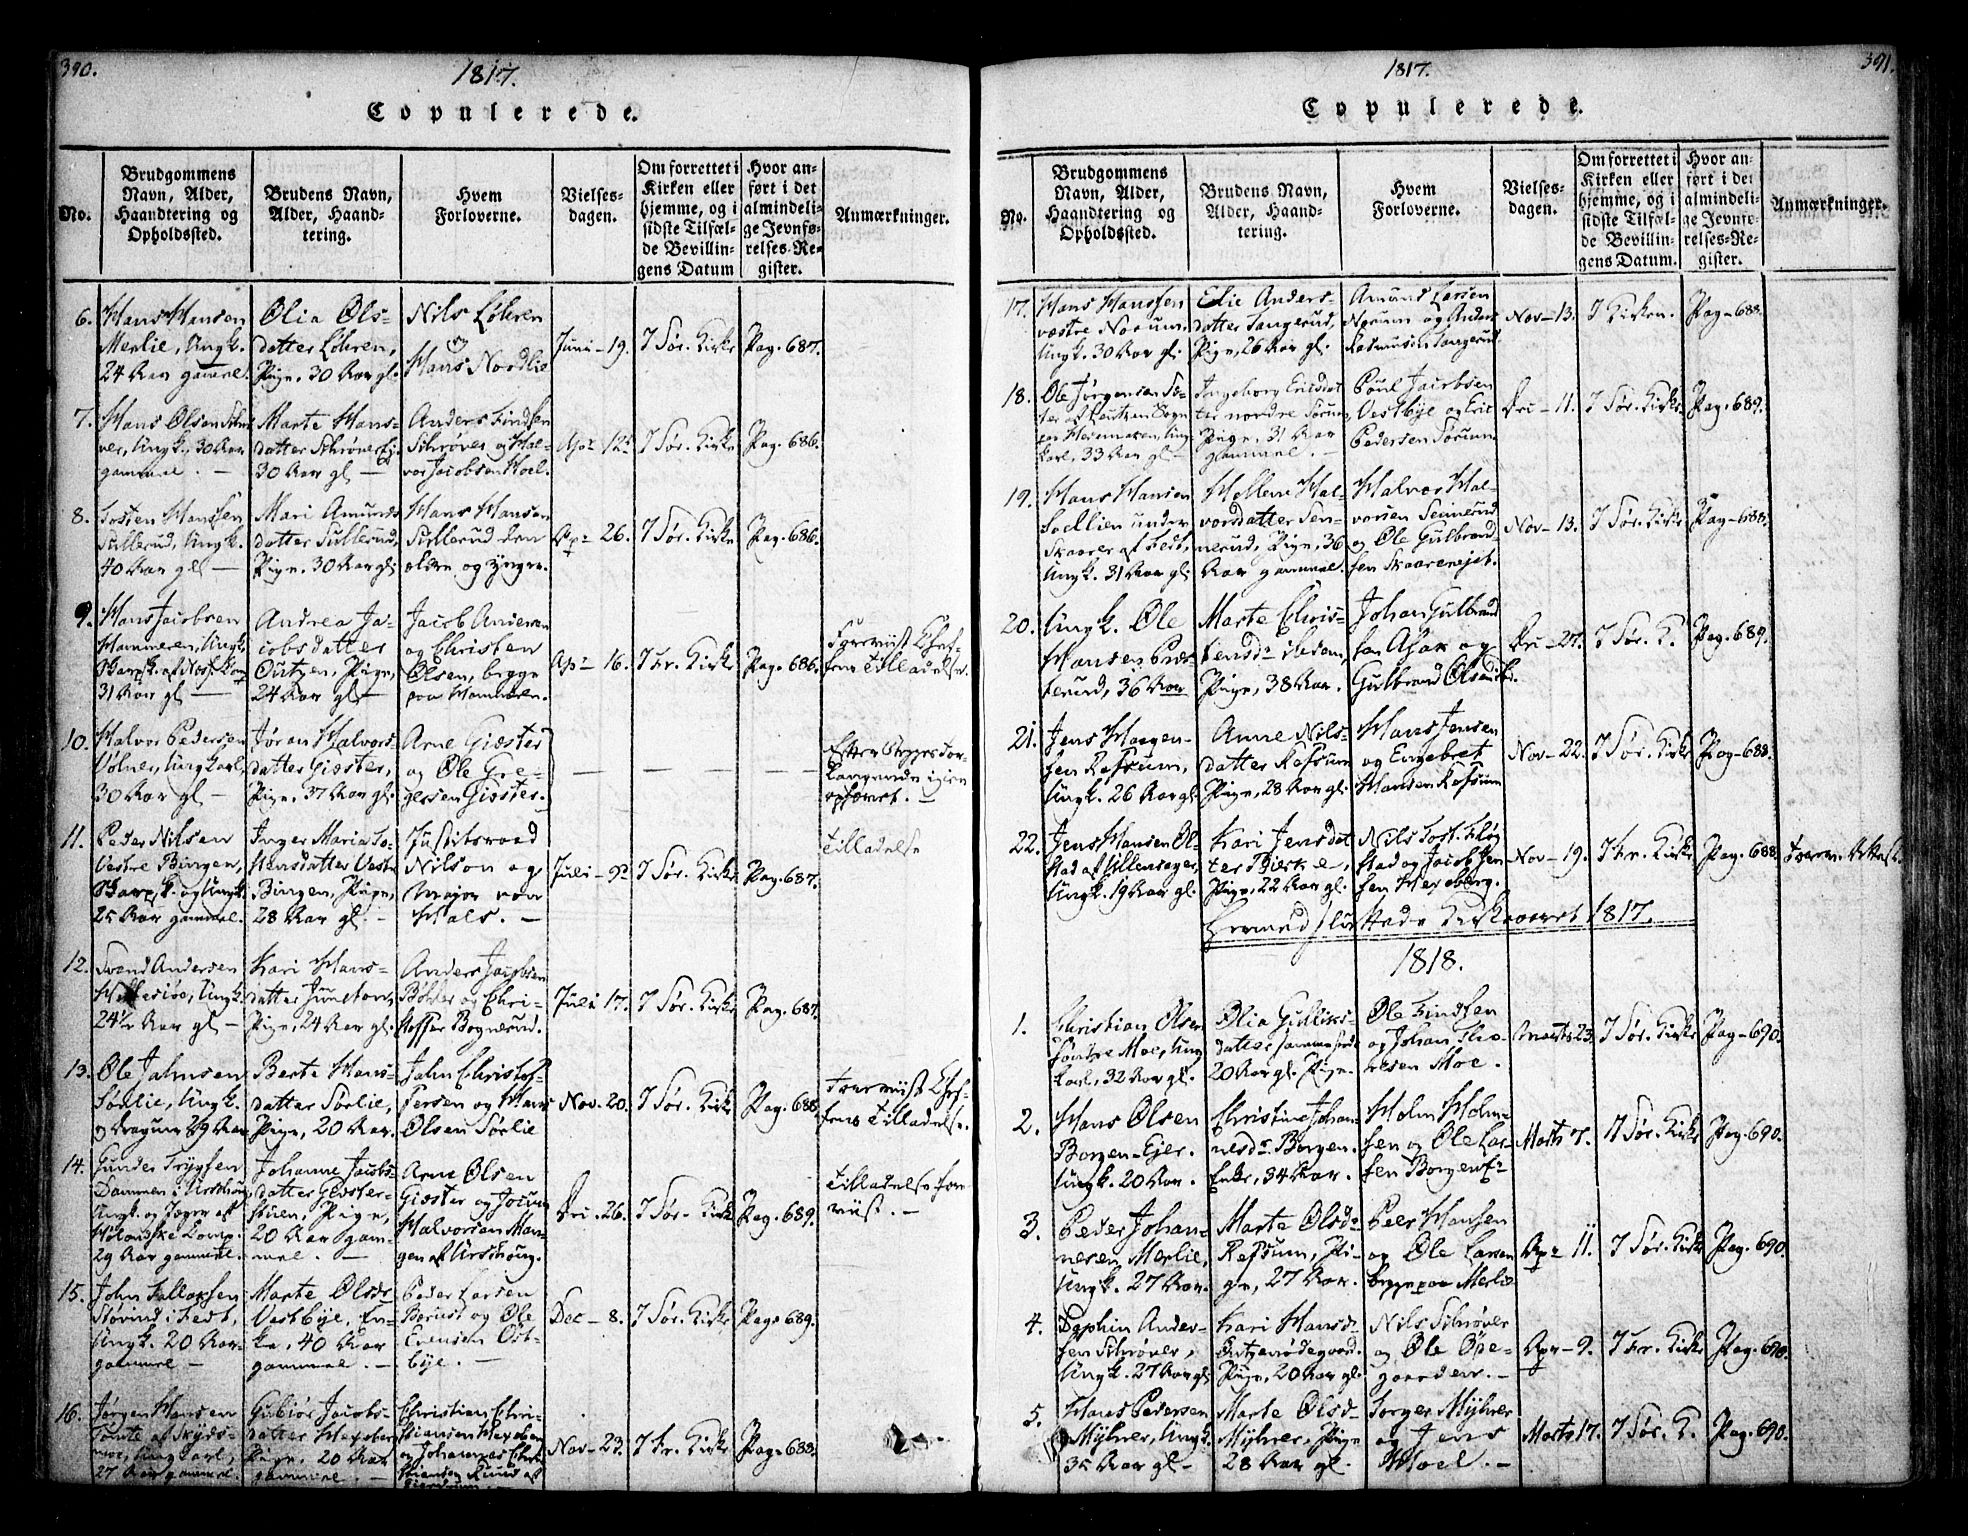 390.
1817.
Copulerede.
No.
Brudgommens
Navn, Alder,
Haandtering og
Opholdssted.
Brudens Navn,
Alder, Haand-
tering.
Hvem
Forloverne.
Vielses-
dagen.
Om forrettet i
Kirken eller
hjemme, og i
sidste Tilfæl-
de Bevillin-
gens Datum
Hvor an-
ført i det
almindeli-
ge Jevnfø-
relses-Re-
gister.
Anmærkninger.
6.
Hans Hansen
Merlie, Ungk.
24 Aar gammel.
Olia Ols-
datter Löhren,
Pige, 30 Aar gl.
Nils Löhren
og
Hans Nordlie
Juni - 19.
I Sør. Kirke
Pag. 687.
7.
Hans Olsen
Ungk. 30 Aar
gammel. -
Marte Hans-
datter Schrøver
30 Aar gl -
Anders Findsen
Schrøver og Hal-
vor Jacobsen Hoel.
Apr 12
I Sør. Kirke
Pag. 686.
8.
Tosten Hansen
Sullerud, Ungk.
40 Aar gl -
Mari Amunds
datter Sullerud,
Pige. 30 Aar gl.
Hans Hansen
Sullerud den
ældre og yngre.
Apr 26.
I Sør. Kirke
Pag. 686.
9.
Hans Jacobsen
Hammeren, Ungk.
31 Aar gl -
Andrea Ja-
cobsdatter
Pige,
24 Aar gl -
Jacob Andersen
og Christen
Olsen, begge
paa Hammeren.
Apr 16.
I Fr. Kirke
Pag. 686.
Forevist Chef-
fens Tilladelse.
10.
Halvor Pedersen
Volner, Ungkarl,
30 Aar gl -
Jøran Halvors-
datter Giæster,
Pige, 37 Aar gl.
Arne Giæster
og Ole Gre-
gersen Giæster.
igien
ophævet. -
11.
Peder Nilsen
Vestre Bingen,
og Ungk.
25 Aar gammel.
Inger Maria To-
stensdatter Vestre
Bingen, Pige,
28 Aar gl. -
Justitsraad
Nilson og
Major von
Hals. -
Juli - 9
I Sør. Kirke
Pag. 687.
Tilladelse
12.
Svend Andersen
Ungk.
24½ Aar gl -
Kari Hans-
datter
Pige, 24 Aar gl.
Anders Jacobsen
Böhler og Chri-
stoffer Bognerud.
Juli 17.
I Sør. Kirke
Pag. 687.
13.
Ole Johnsen
Sörlie, Ungk.
og Dragun 29 Aar
Berte Hans-
datter Sörlie,
Pige, 20 Aar.
John Christof-
fersen og Hans
Olsen Sörlie
Nov. 20.
I Sør. Kirke
Pag. 688.
Forevist Chef-
fens Tilladelse.
14.
Gunder
Dammen i Urschoug
Ungk. og Jæger af
Comp.
29 Aar gammel.
Johanne Jacobs-
datter Giæster-
stuen, Pige,
20 Aar gam-
mel. -
Arne Olsen
Giæster og
Halvorsen Man-
gen af Urschoug.
Dec. 26.
I Sør. Kirke
Pag. 689.
Tilladelse fore-
viist. -
15.
John Tollofsen
i Fedt,
Ungk. 20 Aar
gammel -
Marte Olsdr
Vestbye, En-
ke, 40 Aar
gammel. -
Peder Larsen
og Ole
Evensen Öst-
bye. -
Dec - 8.
I Sør. Kirke
Pag. 689.
16.
Jörgen Hansen
Tomte af
Ungkarl,
27 Aar gammel.
Jacobs-
datter
Pige. 20 Aar
gammel -
Christian Chri-
stiansen
og Johannes
Nov - 23.
I Fr. Kirke
Pag. 688.
391.
1817.
Copulerede.
No.
Brudgommens
Navn, Alder,
Haandtering og
Opholdssted.
Brudens Navn,
Alder, Haand-
tering.
Hvem
Forloverne.
Vielses-
dagen.
Om forrettet i
Kirken eller
hjemme, og i
sidste Tilfæl-
de Bevillin-
gens Datum.
Hvor an-
ført i det
almindeli-
ge Jevnfø-
relses-Re-
gister.
Anmærkninger.
17.
Hans Hansen
vestre Norum,
Ungk. 30 Aar gl.
Elie Anders-
datter Tangerud,
Pige, 26 Aar gl.
Amund Larsen
Norum og Anders
Rasmusen Tangerud.
Nov - 13.
I Kirken.
Pag - 688.
18.
Ole Jørgensen
Ung-
karl, 33 Aar gl -
Ingeborg Ericsdat
ter nordre Sörum,
Pige, 31 Aar
gammel. -
Poul Jacobsen
Vestbye og Eric
Pedersen Sörum
Dec - 11.
I Sør. Kirke
Pag. 689.
19.
Hans Hansen
under
Skaarer af Fedt,
Ungk. 31 Aar gl.
Hal-
vorsdatter Sen-
nerud, Pige, 36
Aar gammel.
Halvor Hal-
vorsen Sennerud
og Ole Gulbrand
sen Skaarer
Nov - 13.
I Sør. Kirke
Pag - 688.
20.
Ungk. Ole
Hansen
36 Aar
Marte Chris-
Pige, 38 Aar.
Johan Gulbrand
sen og
Gulbrand Olsen
Dec - 27.
I Sør. K.
Pag. 689.
21.
Jens Haagen-
sen Refsum,
Ungk. 26 Aar gl.
Anne Nils-
datter Refsum
Pige, 28 Aar gl.
Hans Jensen
og Engebret
Hansen Refsum
Nov - 22.
I Sør. Kirke
Pag - 688.
22.
Jens Hansen Ol-
stad af Ullensager,
Ungk. 19 Aar gl.
Kari Jensdat
ter Bierke,
Pige, 22 Aar gl.
Nils Tost. Flög
stad og Jacob Jen
sen Hersberg.
Nov - 19.
I Fr. Kirke
Pag. 688
Forev. Attest.
Hermed sluttede Kirkeaaret 1817.
1818.
1.
Christian Olsen
Søndre Moe, Ung
karl, 32 Aar gl.
Olia Gulliks-
datter sammesteds
20 Aar gl. Pige.
Ole Findsen
og Johan Tho-
resen Moe.
Marts 23.
I Sør. Kirke
Pag - 690.
2.
Hans Olsen
Borgen-Ejer.
Ungk. 20 Aar.
Christine Johan-
nesdr Borgen.
Enke, 34 Aar.
Holm Holm-
sen og Ole Lar
sen Borgen Er
Marts 7.
I Sør. Kirke
Pag. 690.
3.
Peder Johan-
nesen Merlie,
Ungk. 27 Aar.
Marte Olsdr
Refsum, Pi-
ge, 27 Aar.
Peer Hansen
og Ole Larsen
begge paa Merlie
Apr 11.
I Sør. Kirke
Pag. 690.
4.
Dephin Ander-
sen Schrøver,
Ungk. 27 Aar gl
Kari Hansdr
Pige, 20 Aar gl.
Nils Schrøver
og Ole Öde-
gaarden. -
Apr - 9.
I Fr. Kirke
Pag. 690.
5.
Hans Pedersen
Mÿhrer, Ungk.
35 Aar gl -
Marte Olsd-
Mÿhrer, Pige
28 Aar gl.
Torger Mÿhrer
og Jens
Hoel. -
Marts 17.
I Sør. K.
Pag. 690.